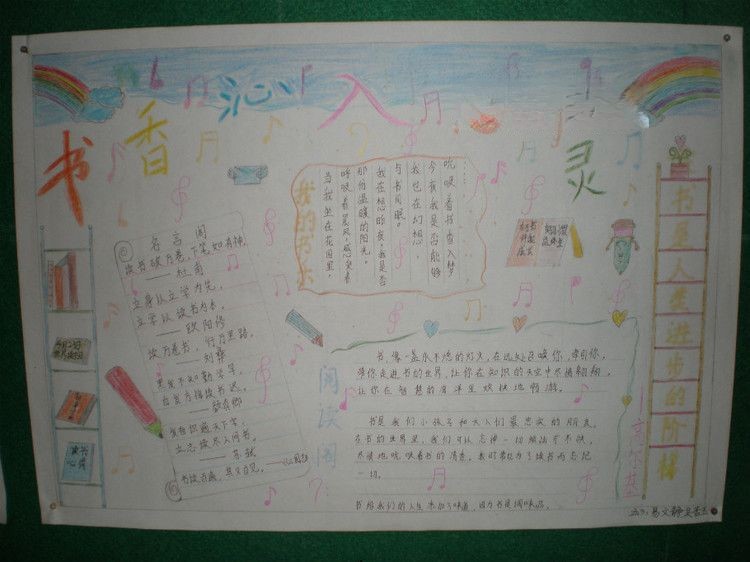 书香沁人心灵
名言阁
读书破万卷,下笔如有神。
——杜甫
立身以立学为先,
立学以读书为本。
——欧阳修
读万卷书,行万里路。
——刘彝
黑发不知勤学早,
白首方悔读书迟。
——颜真卿
发愤识遍天下字,
立志读尽人间书。
——苏轼
书读百遍,其义自见。
当我坐在花园里,
呼吸着晨风,感受着
那份温暖的阳光。
我在想昨夜,我是否
与书同眠。
我也在幻想,
今夜我是否能够
吮吸着书香入梦
阅读阁
书像一盏永不熄的灯火,在远处召唤你,牵引你,
带你走进书的世界,让你在知识的天空中尽情翱翔,
让你在智慧的海洋里欢快地畅游。
书是我们小孩子和大人们最忠实的朋友,
在书的世界里,我们可以忘掉一切烦恼和不快,
尽情地吮吸着书的清香,我时常化为了读书而忘记
一切。
书给我们的人生添加了味道,因为书是调味品。
书是人类进步的阶梯
——高尔基
读书
心得